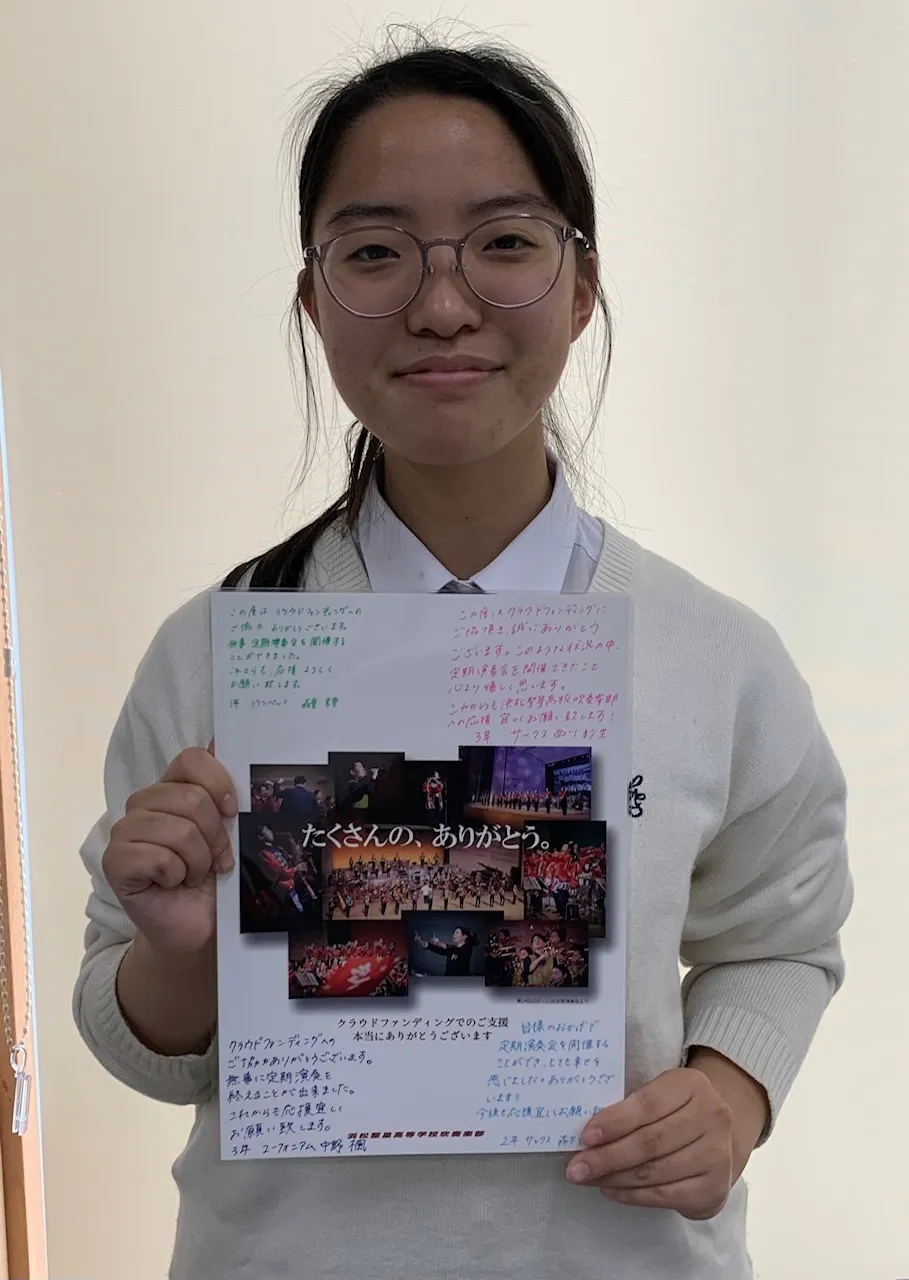 この度は クラウドファンディングへの
ご協力 ありがとうございます。
無事 定期演奏会を開催する
ことができました。
これからも、応援 よろしく
お願い致します。
トランペット
この度はクラウドファンディングに
ご協力頂き、誠にありがとう
ございます。このような状況の中、
定期演奏会を開催できたこと
心より嬉しく思います。
これからも浜松聖星高校吹奏楽部
への応援 宜しくお願い致します!
3年 サックス 西川
たくさんの、ありがとう。
クラウドファンディングでのご支援
本当にありがとうございます
クラウドファンディングへの
ご協力ありがとうございます。
無事に定期演奏を
終えることが出来ました。
これからも応援宜しく
お願い致します。
3年 ユーフォニアム 中野 楓
皆様のおかげで
定期演奏会を開催する
ことができ、とても幸せを
感じました。ありがとうござ
います!!
今後も応援宜しくお願い
2年 サックス
浜松聖星高等学校吹奏楽部